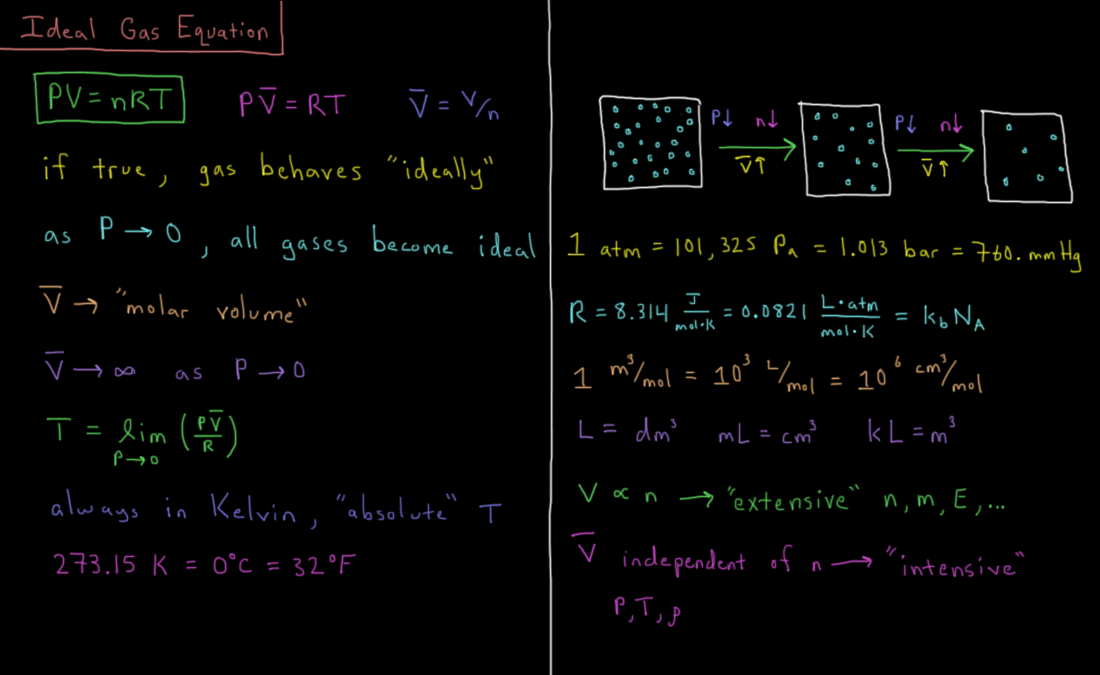 Ideal Gas Equation
PV = nRT  PV̅ = RT  V̅ = V/n
if true, gas behaves "ideally"
as P → 0, all gases become ideal
V̅ → "molar volume"
V̅ → ∞ as P → 0
T = lim P→0 (PV̅/R)
always in Kelvin, "absolute" T
273.15 K = 0°C = 32°F
P↓ n↓
V̅↑
P↓ n↓
V̅↑
1 atm = 101,325 Pa = 1.013 bar = 760. mmHg
R = 8.314 J/mol·K = 0.0821 L·atm/mol·K = k_b N_A
1 m³/mol = 10³ L/mol = 10⁶ cm³/mol
L = dm³ mL = cm³ kL = m³
V ∝ n → "extensive" n, m, E, ...
V̅ independent of n → "intensive"
P, T, ρ